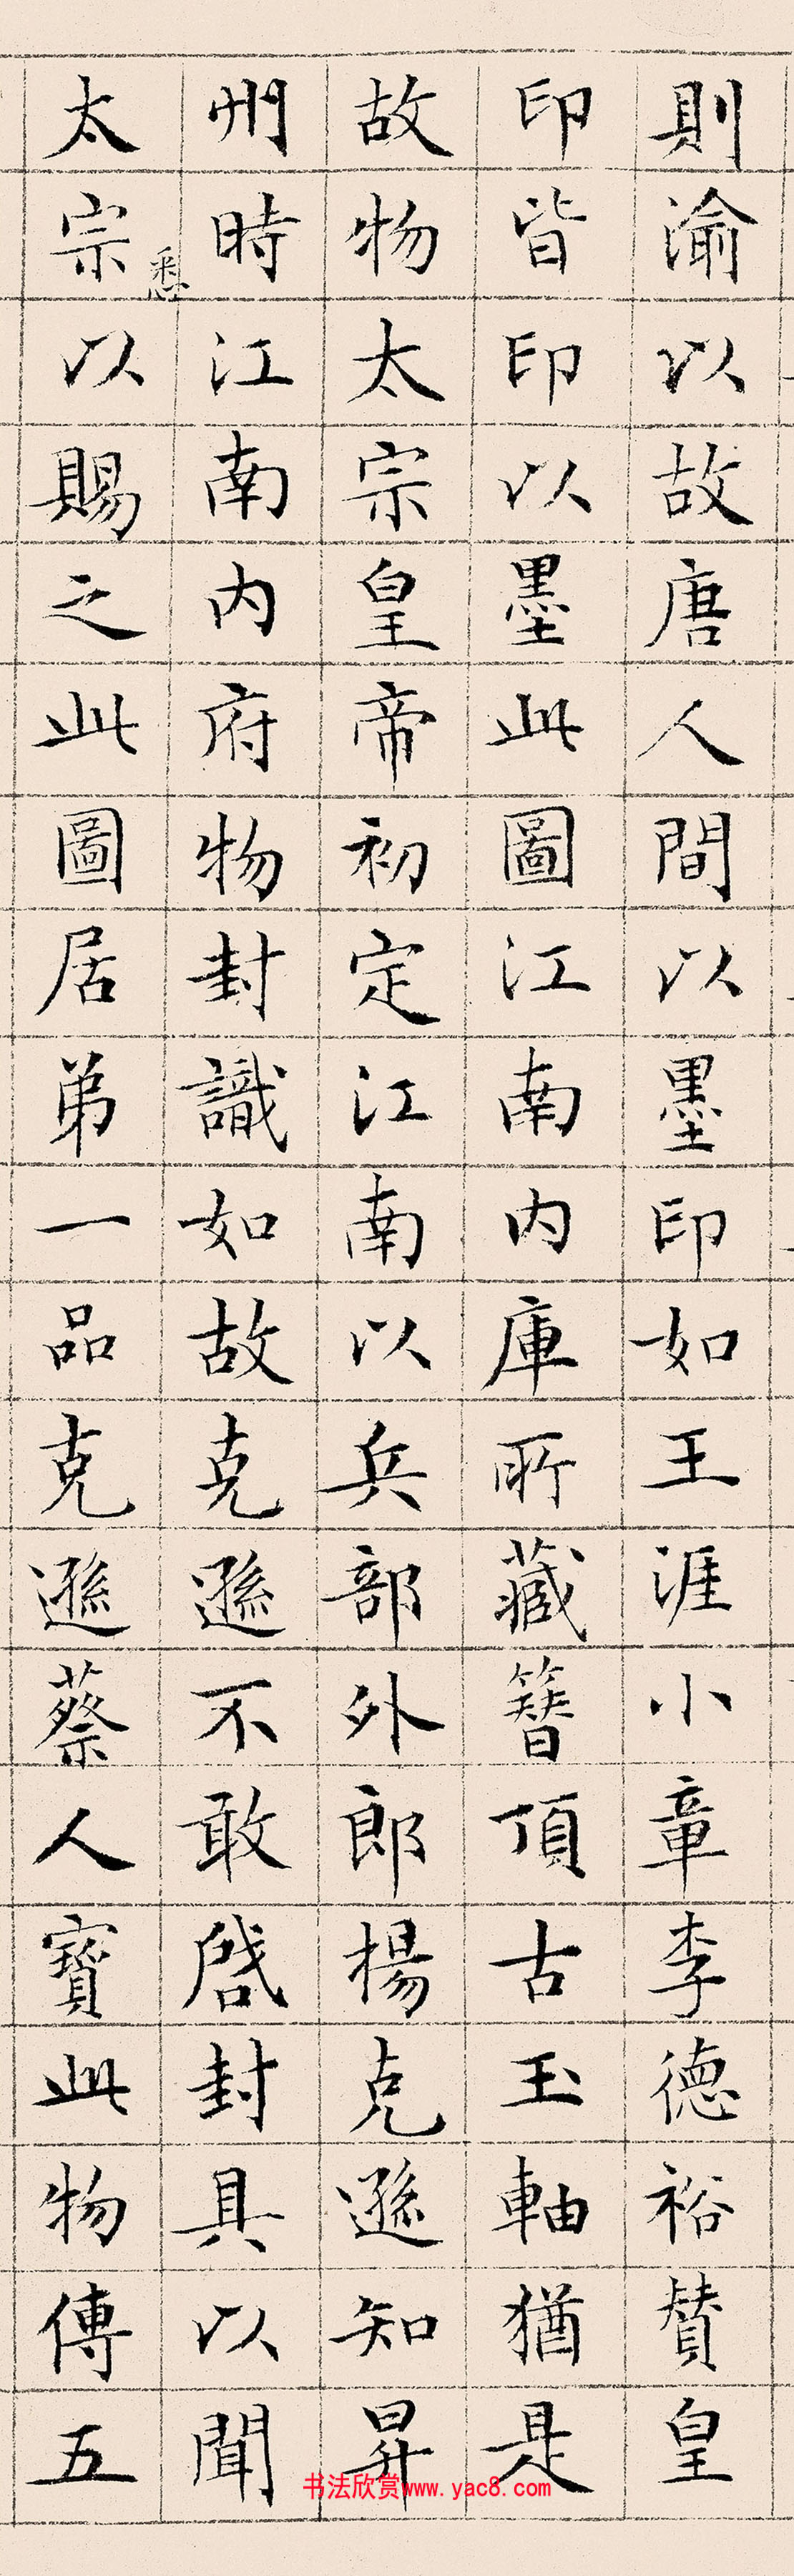 則渝以故唐人間以墨印如王涯小章李德裕贊皇
印皆印以墨此圖江南内庫所藏簪頂古玉軸猶是
故物太宗皇帝初定江南以兵部外郎楊克遜知昇
州時江南内府物封識如故克遜不敢啓封具以聞
悉
太宗以賜之此圖居第一品克遜蔡人寶此物傳五
书法欣赏www.yac8.com